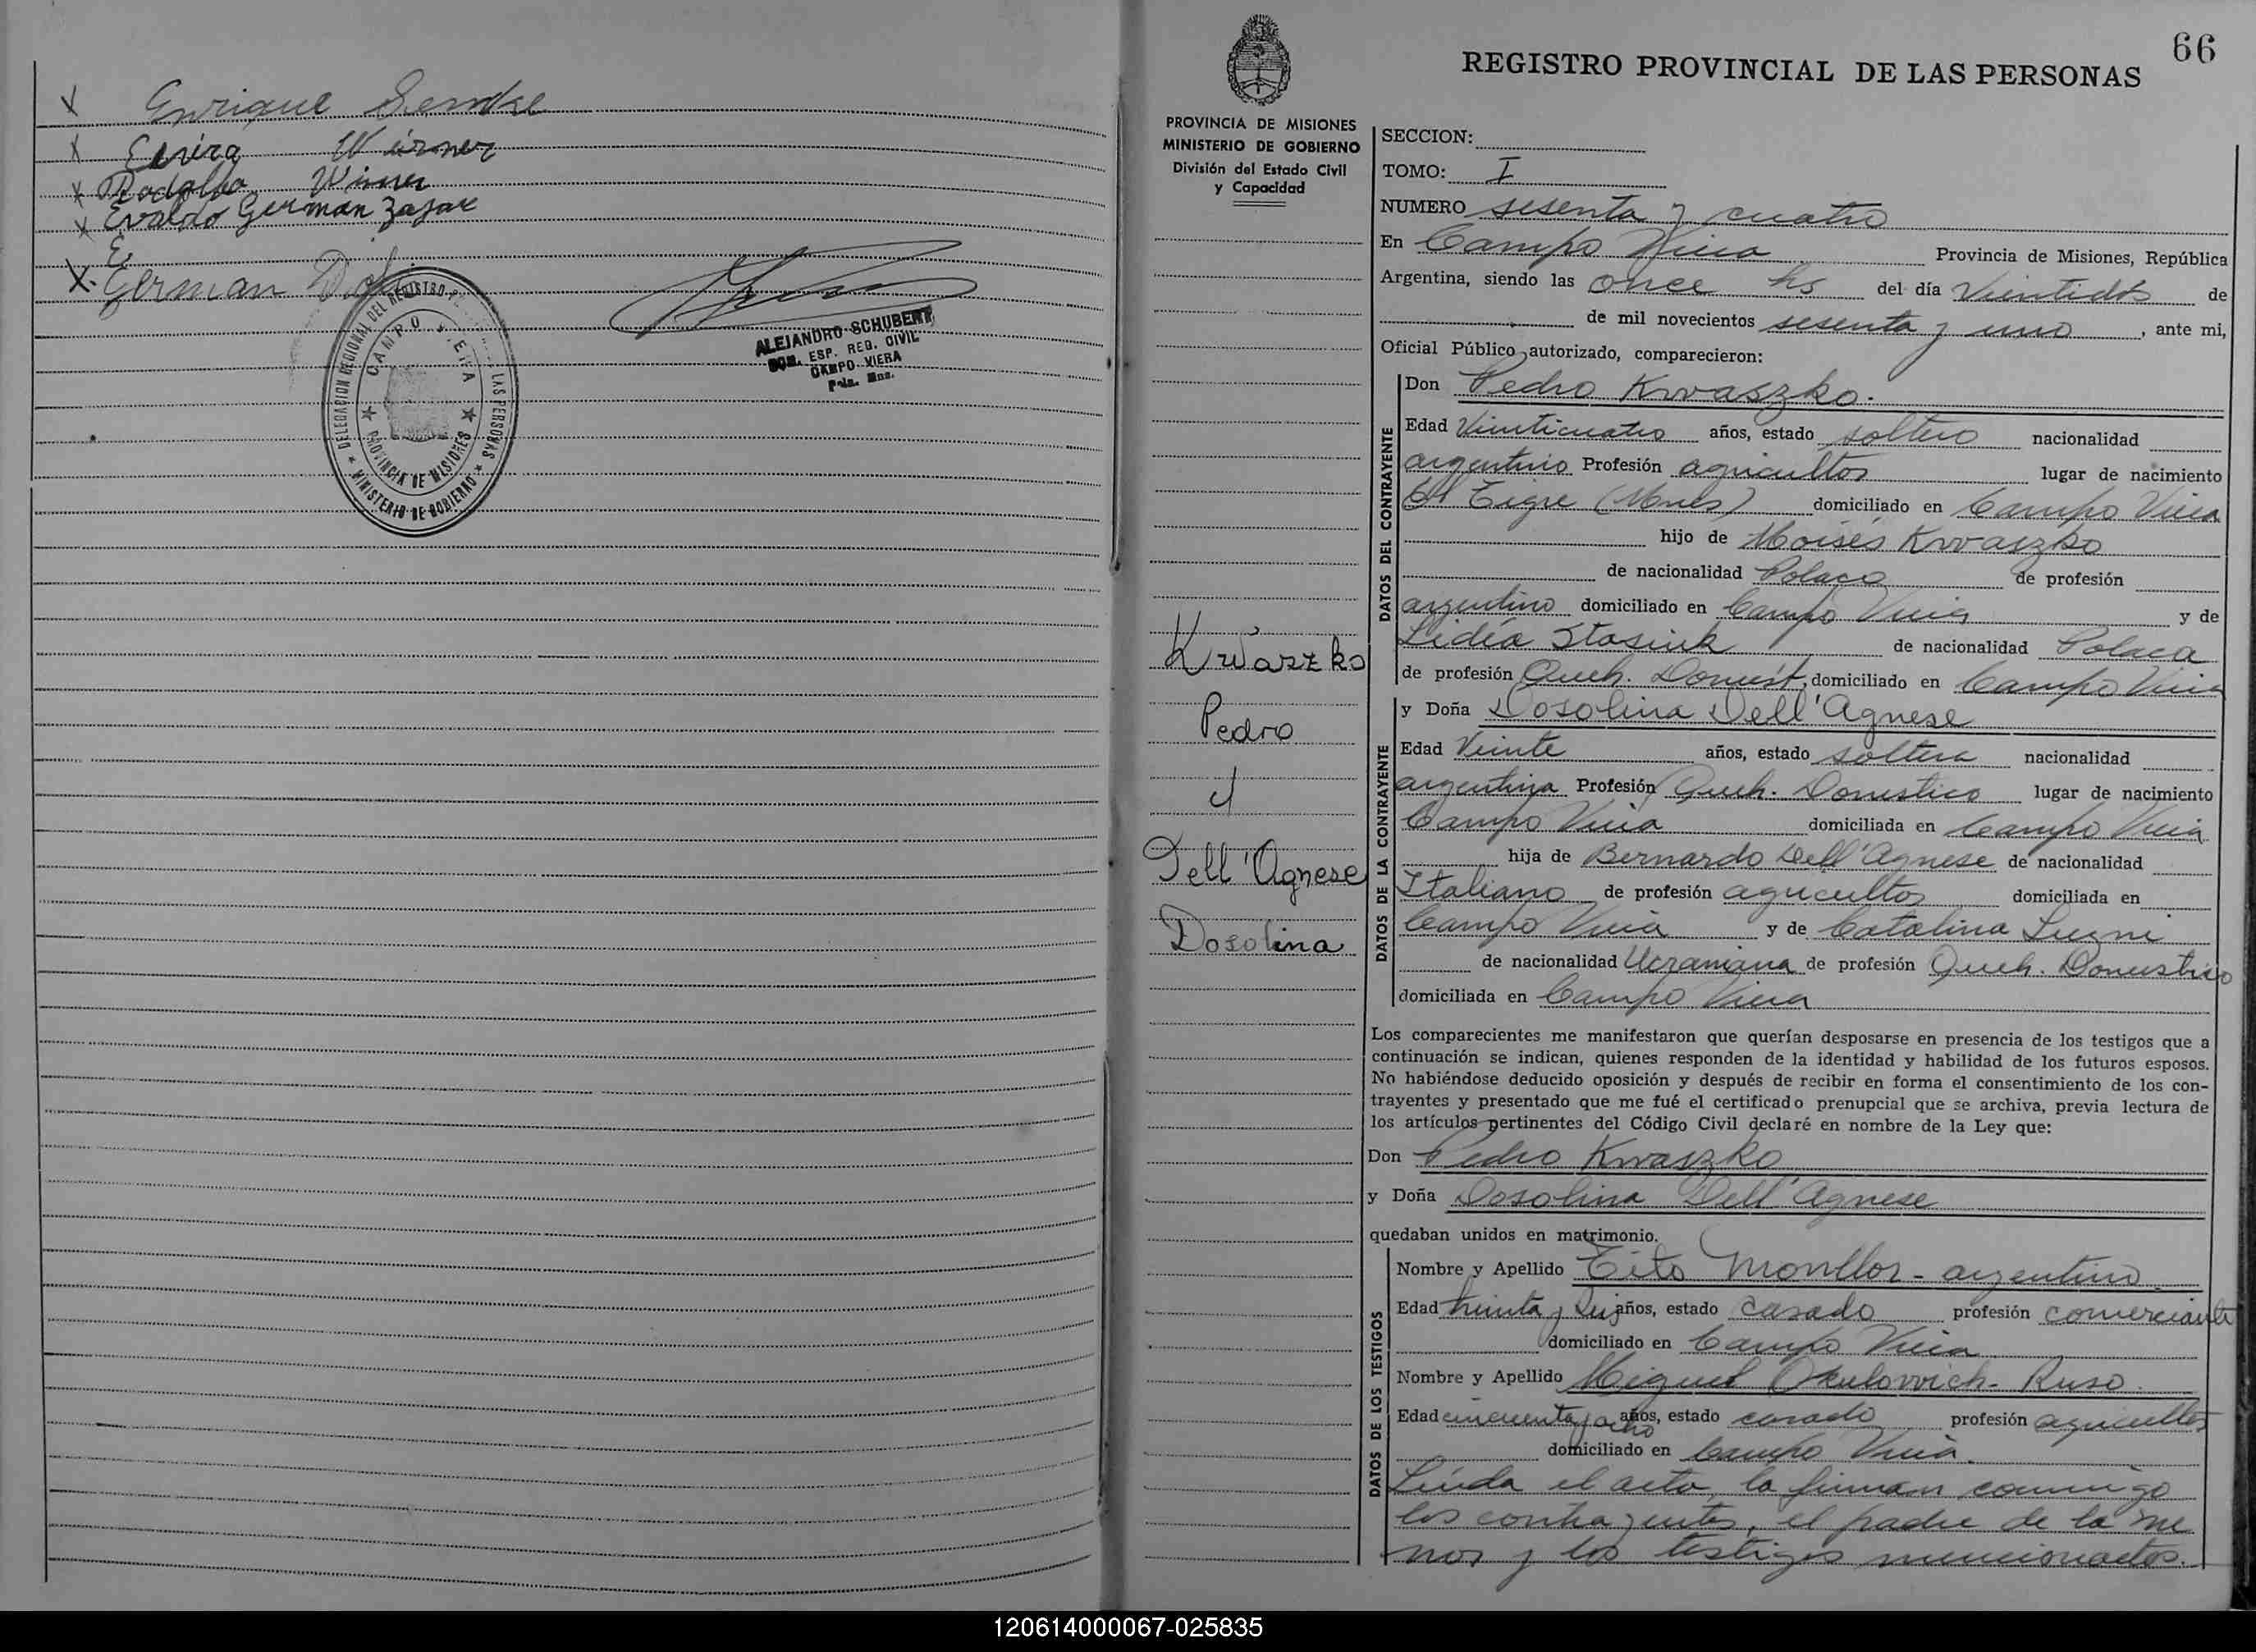 Enrique Semke
Elvira Wirner
Rodolfo Wirner
Evaldo German
E
German
DELEGACION REGIONAL DEL REGISTRO LAS PERSONAS
CAMPO VIERA
PROVINCIA DE MISIONES
MINISTERIO DE GOBIERNO
ALEJANDRO SCHUBERT
ESP. REG. CIVIL
CAMPO VIERA
66
REGISTRO PROVINCIAL DE LAS PERSONAS
PROVINCIA DE MISIONES
MINISTERIO DE GOBIERNO
División del Estado Civil
y Capacidad
Kwaszko
Pedro
y
Dell'Agnese
Dosolina
SECCION:
TOMO: I
NUMERO sesenta y cuatro
En Campo Viera Provincia de Misiones, República
Argentina, siendo las once hs del día Veintidós de
de mil novecientos sesenta y uno, ante mi,
Oficial Público autorizado, comparecieron:
DATOS DEL CONTRAYENTE
Don Pedro Kwaszko.
Edad Veinticuatro años, estado soltero nacionalidad
argentino Profesión agricultor lugar de nacimiento
El Tigre (Mnes) domiciliado en Campo Viera
hijo de Moisés Kwaszko
de nacionalidad Polaco de profesión
argentino domiciliado en Campo Viera y de
Lidia Stasiuk de nacionalidad Polaca
de profesión Queh. Domést. domiciliado en Campo Viera
DATOS DE LA CONTRAYENTE
y Doña Dosolina Dell'Agnese
Edad Veinte años, estado soltera nacionalidad
argentina Profesión Queh. Domestico lugar de nacimiento
Campo Viera domiciliada en Campo Viera
hija de Bernardo Dell'Agnese de nacionalidad
Italiano de profesión agricultor domiciliada en
Campo Viera y de Catalina
de nacionalidad Ucraniana de profesión Queh. Domestico
domiciliada en Campo Viera
Los comparecientes me manifestaron que querían desposarse en presencia de los testigos que a
continuación se indican, quienes responden de la identidad y habilidad de los futuros esposos.
No habiéndose deducido oposición y después de recibir en forma el consentimiento de los con-
trayentes y presentado que me fué el certificado prenupcial que se archiva, previa lectura de
los artículos pertinentes del Código Civil declaré en nombre de la Ley que:
Don Pedro Kwaszko
y Doña Dosolina Dell'Agnese
quedaban unidos en matrimonio.
DATOS DE LOS TESTIGOS
Nombre y Apellido Tito Monllor - argentino
Edad treinta y seis años, estado casado profesión comerciante
domiciliado en Campo Viera
Nombre y Apellido Miguel Okulovvich - Ruso
Edad cincuenta y ocho años, estado casado profesión agricultor
domiciliado en Campo Viera.
Leída el acta, la firman conmigo
los contrayentes, el padre de la me
nor y los testigos mencionados.
120614000067-025835